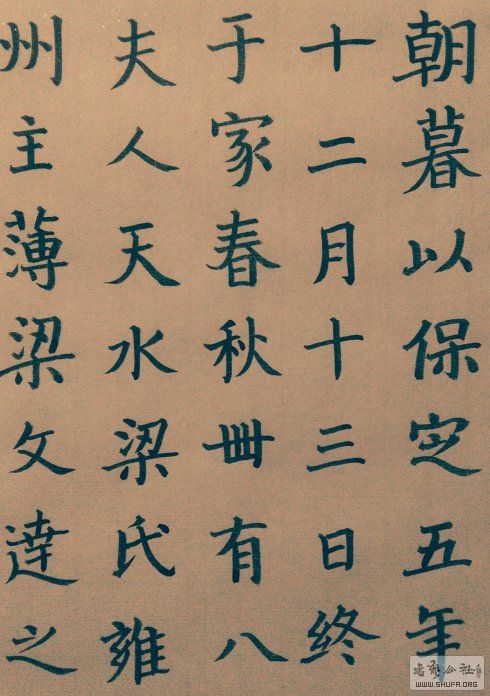 朝暮以保定五年
十二月十三日终
于家春秋卌有八
夫人天水梁氏雍
州主薄梁文達之
WWW.SHUFA.ORG